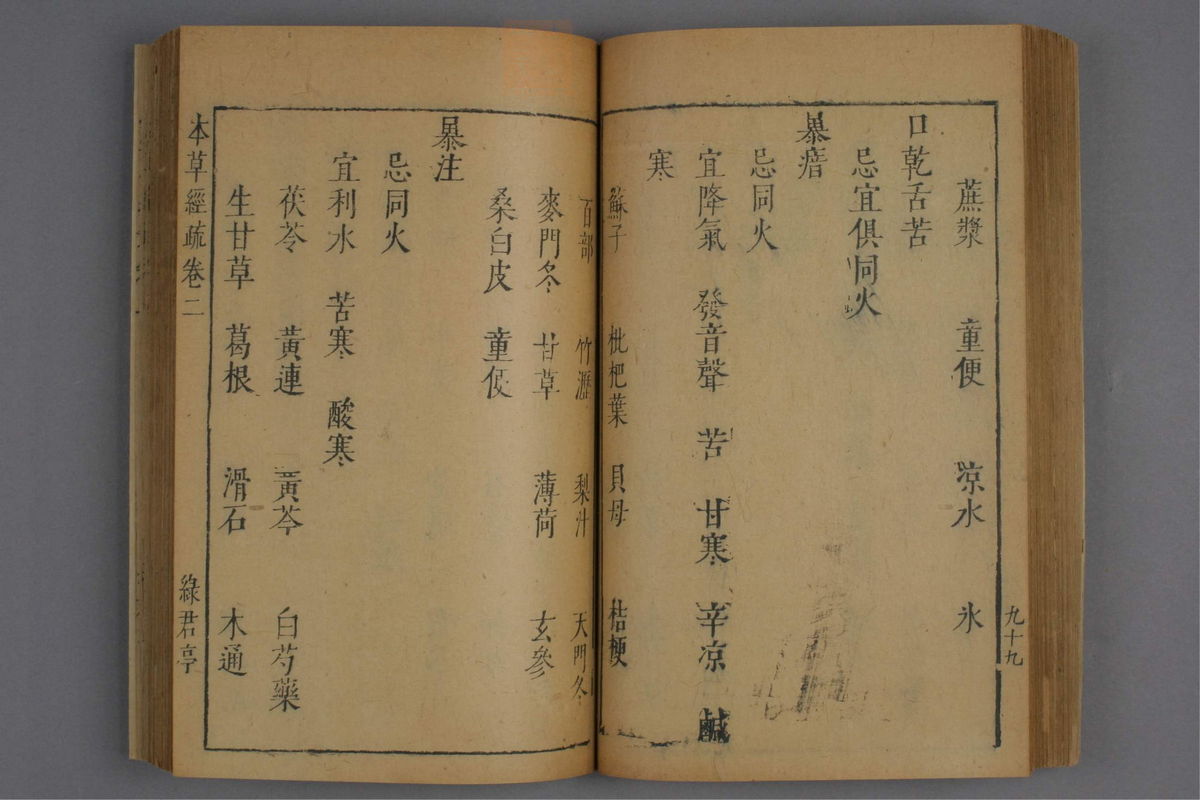 蔗漿 童便 凉水 氷
口乾舌苦
忌宜俱同火
暴瘖
忌同火
宜降氣 發音聲 苦 甘寒 辛凉 鹹
寒
蘇子 枇杷葉 貝母 桔梗
九十九
百部 竹瀝 梨汁 天門冬
麥門冬 甘草 薄荷 玄參
桑白皮 童便
暴注
忌同火
宜利水 苦寒 酸寒
茯苓 黃連 黃芩 白芍藥
生甘草 葛根 滑石 木通
本草經疏卷二 綠君亭